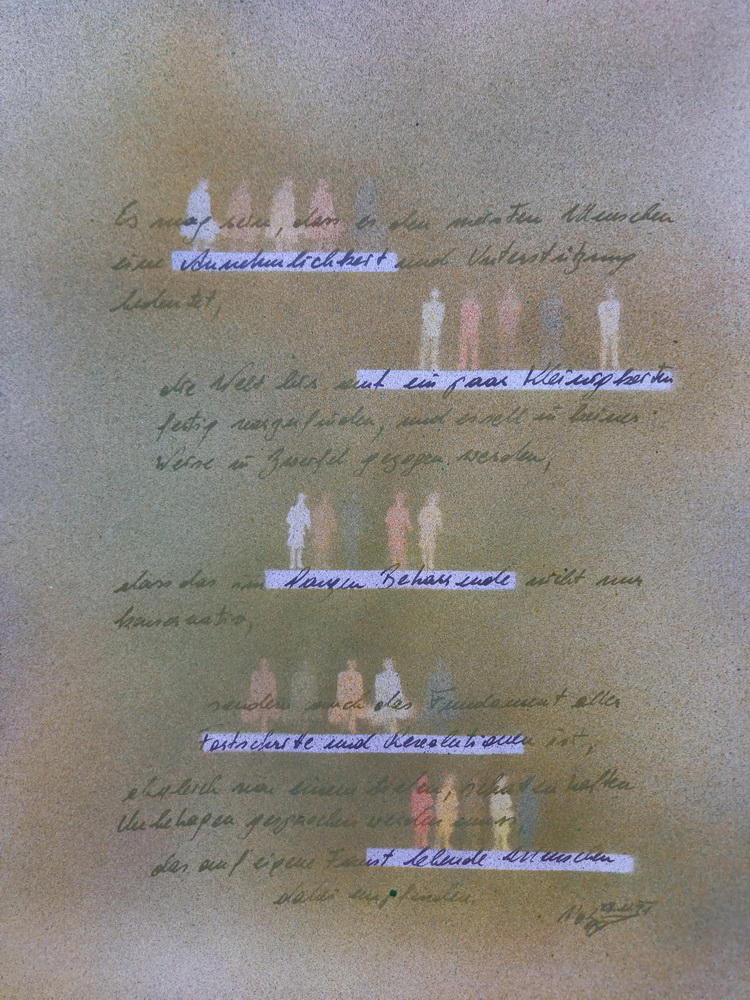 Es mag sein, dass es den meisten Menschen
eine Annehmlichkeit und Unterstützung
bedeutet,
die Welt bis auf ein paar Kleinigkeiten
fertig vorzufinden, und es soll in keiner
Weise in Zweifel gezogen werden,
dass das im Ganzen Beharrende nicht nur
konservativ,
sondern auch das Fundament aller
Fortschritte und Revolutionen ist,
obgleich von einem tiefen, schattenhaften
Unbehagen gesprochen werden muss,
das auf eigene Faust lebende Menschen
dabei empfinden.